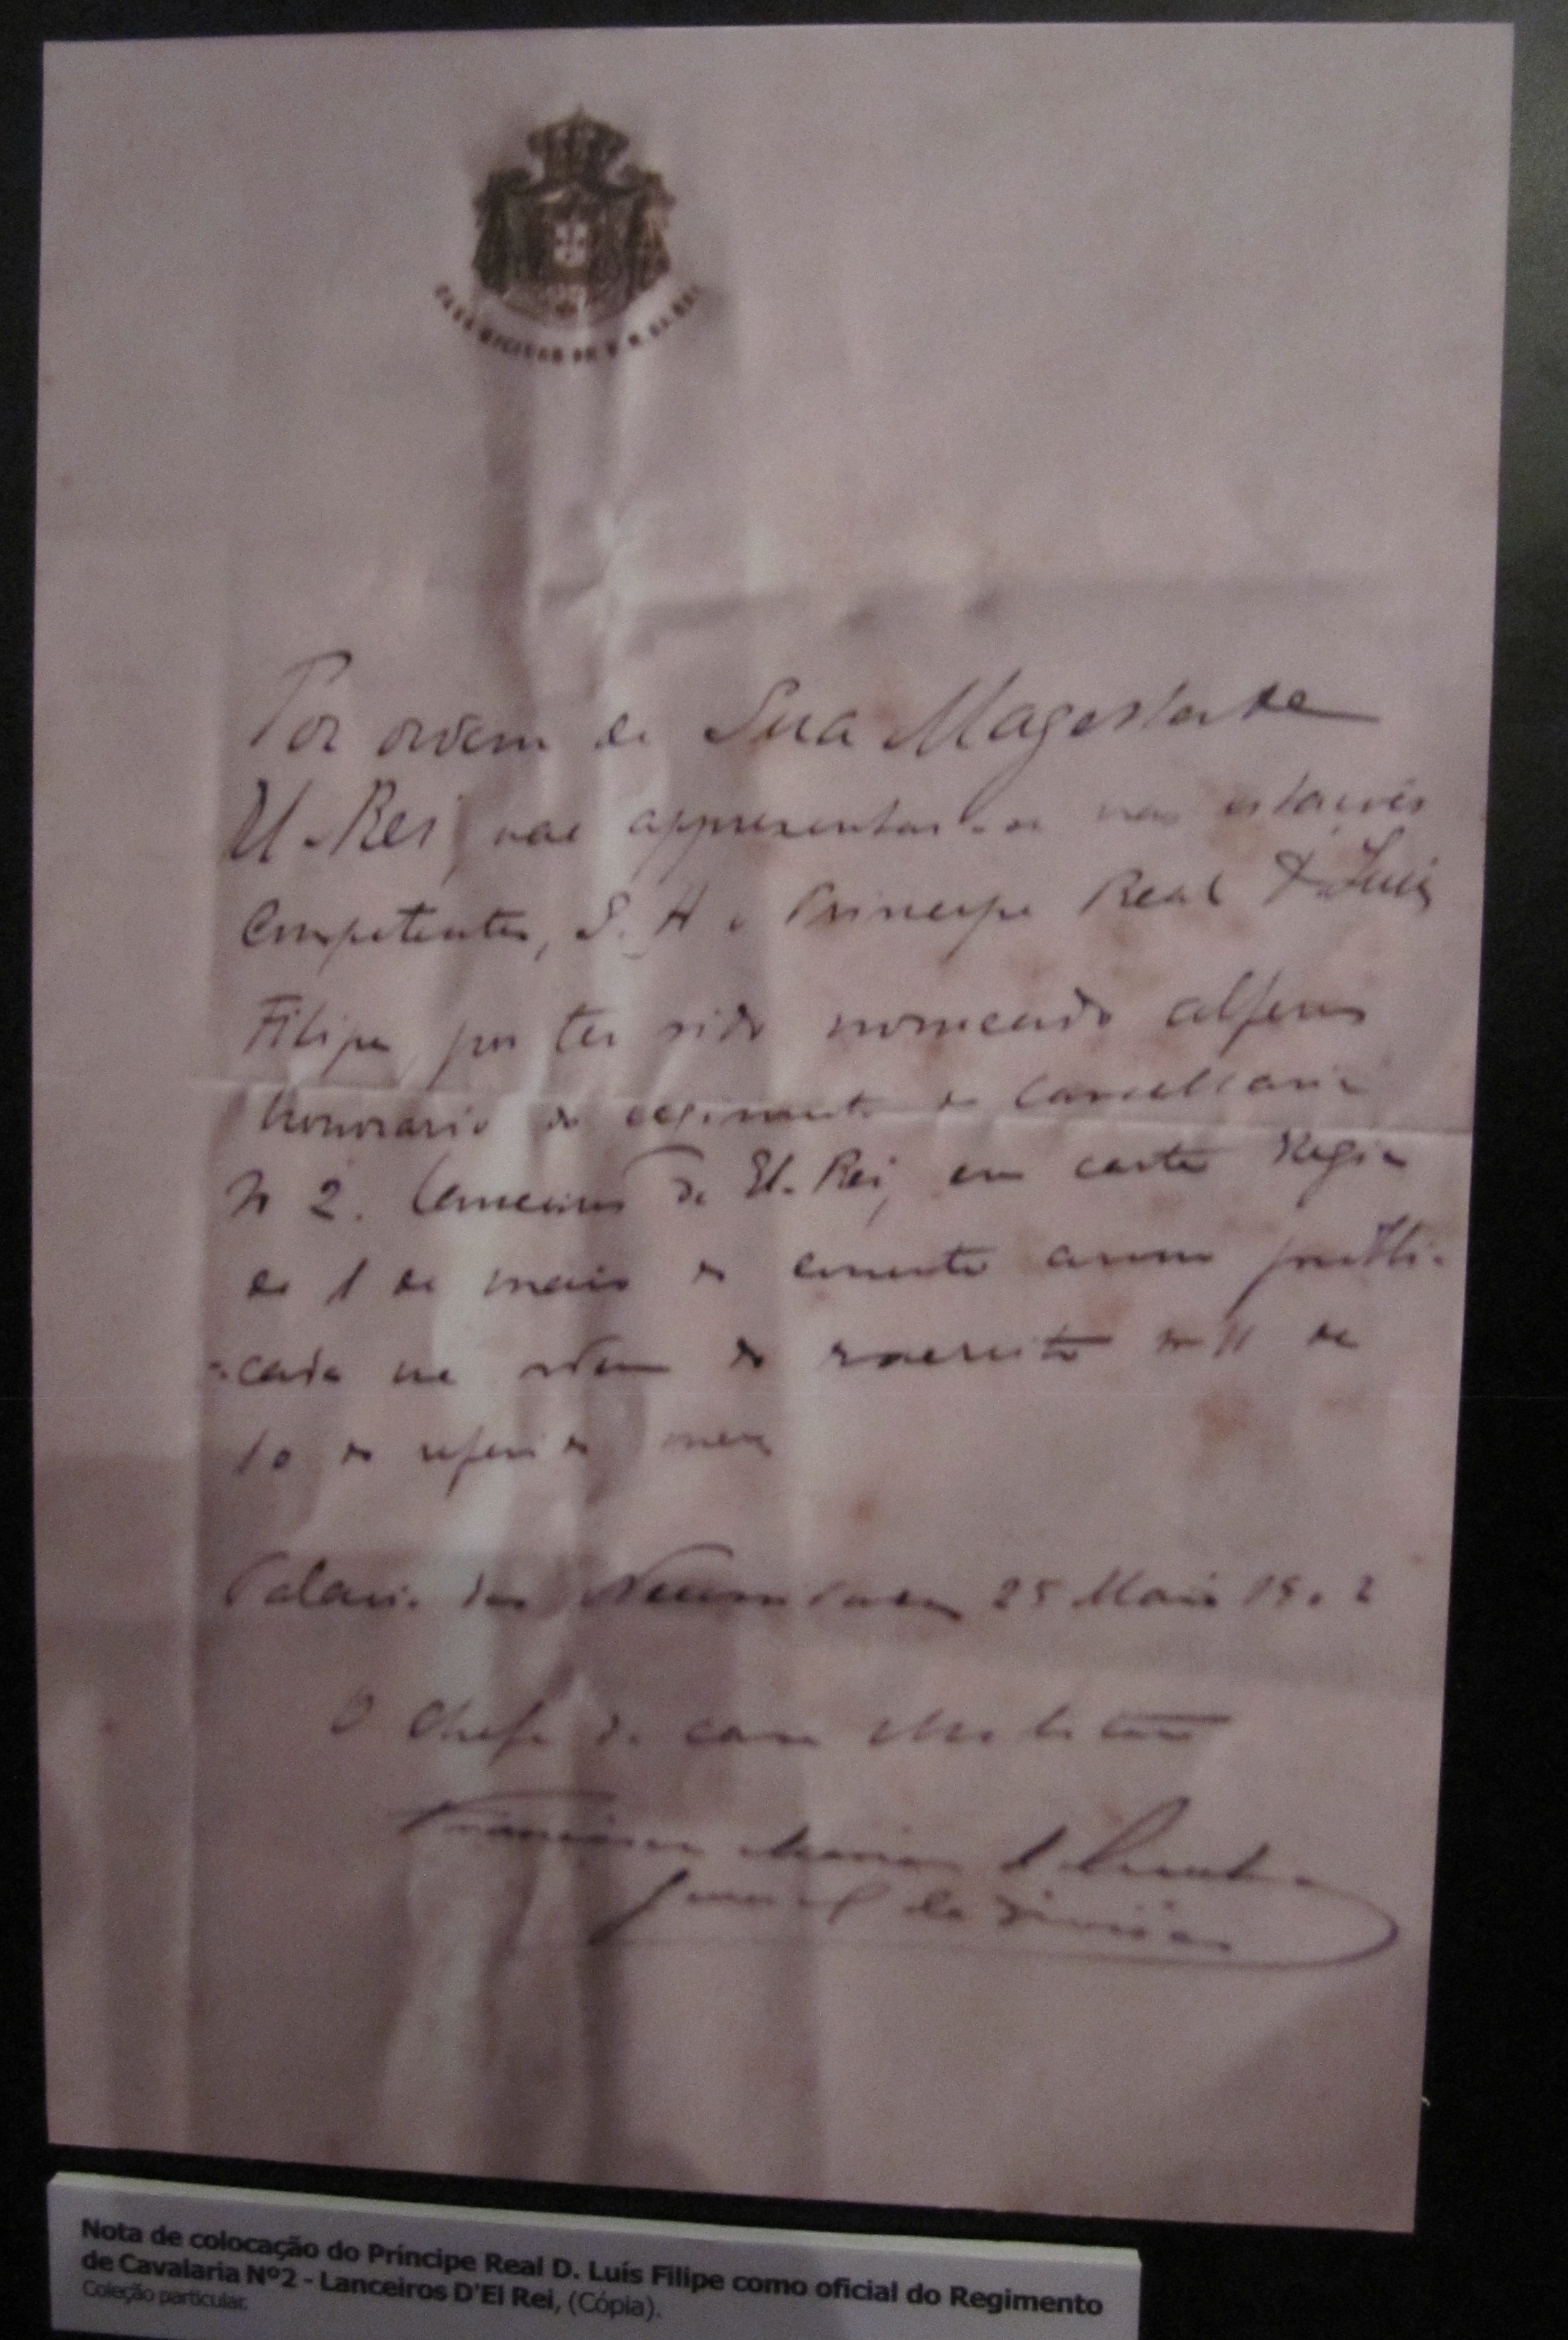 CASA MILITAR DE S. M. EL-REI
Por ordem de Sua Magestade
El-Rei, vae appresentar-se nas estações
Competentes, S. A. o Principe Real D. Luis
Filipe, por ter sido nomeado alferes
honorario do regimento de Cavallaria
Nº 2. Lanceiros de El-Rei, em carta Regia
de 1 de maio do corrente anno publi-
-cada na ordem do exercito nº 11 de
10 do referido mez
Palacio das Necessidades 25 Maio 1902
O Chefe da casa Militar
Francisco Maria da Cunha
General de Divisão
Nota de colocação do Príncipe Real D. Luís Filipe como oficial do Regimento
de Cavalaria Nº2 - Lanceiros D'El Rei, (Cópia).
Coleção particular.